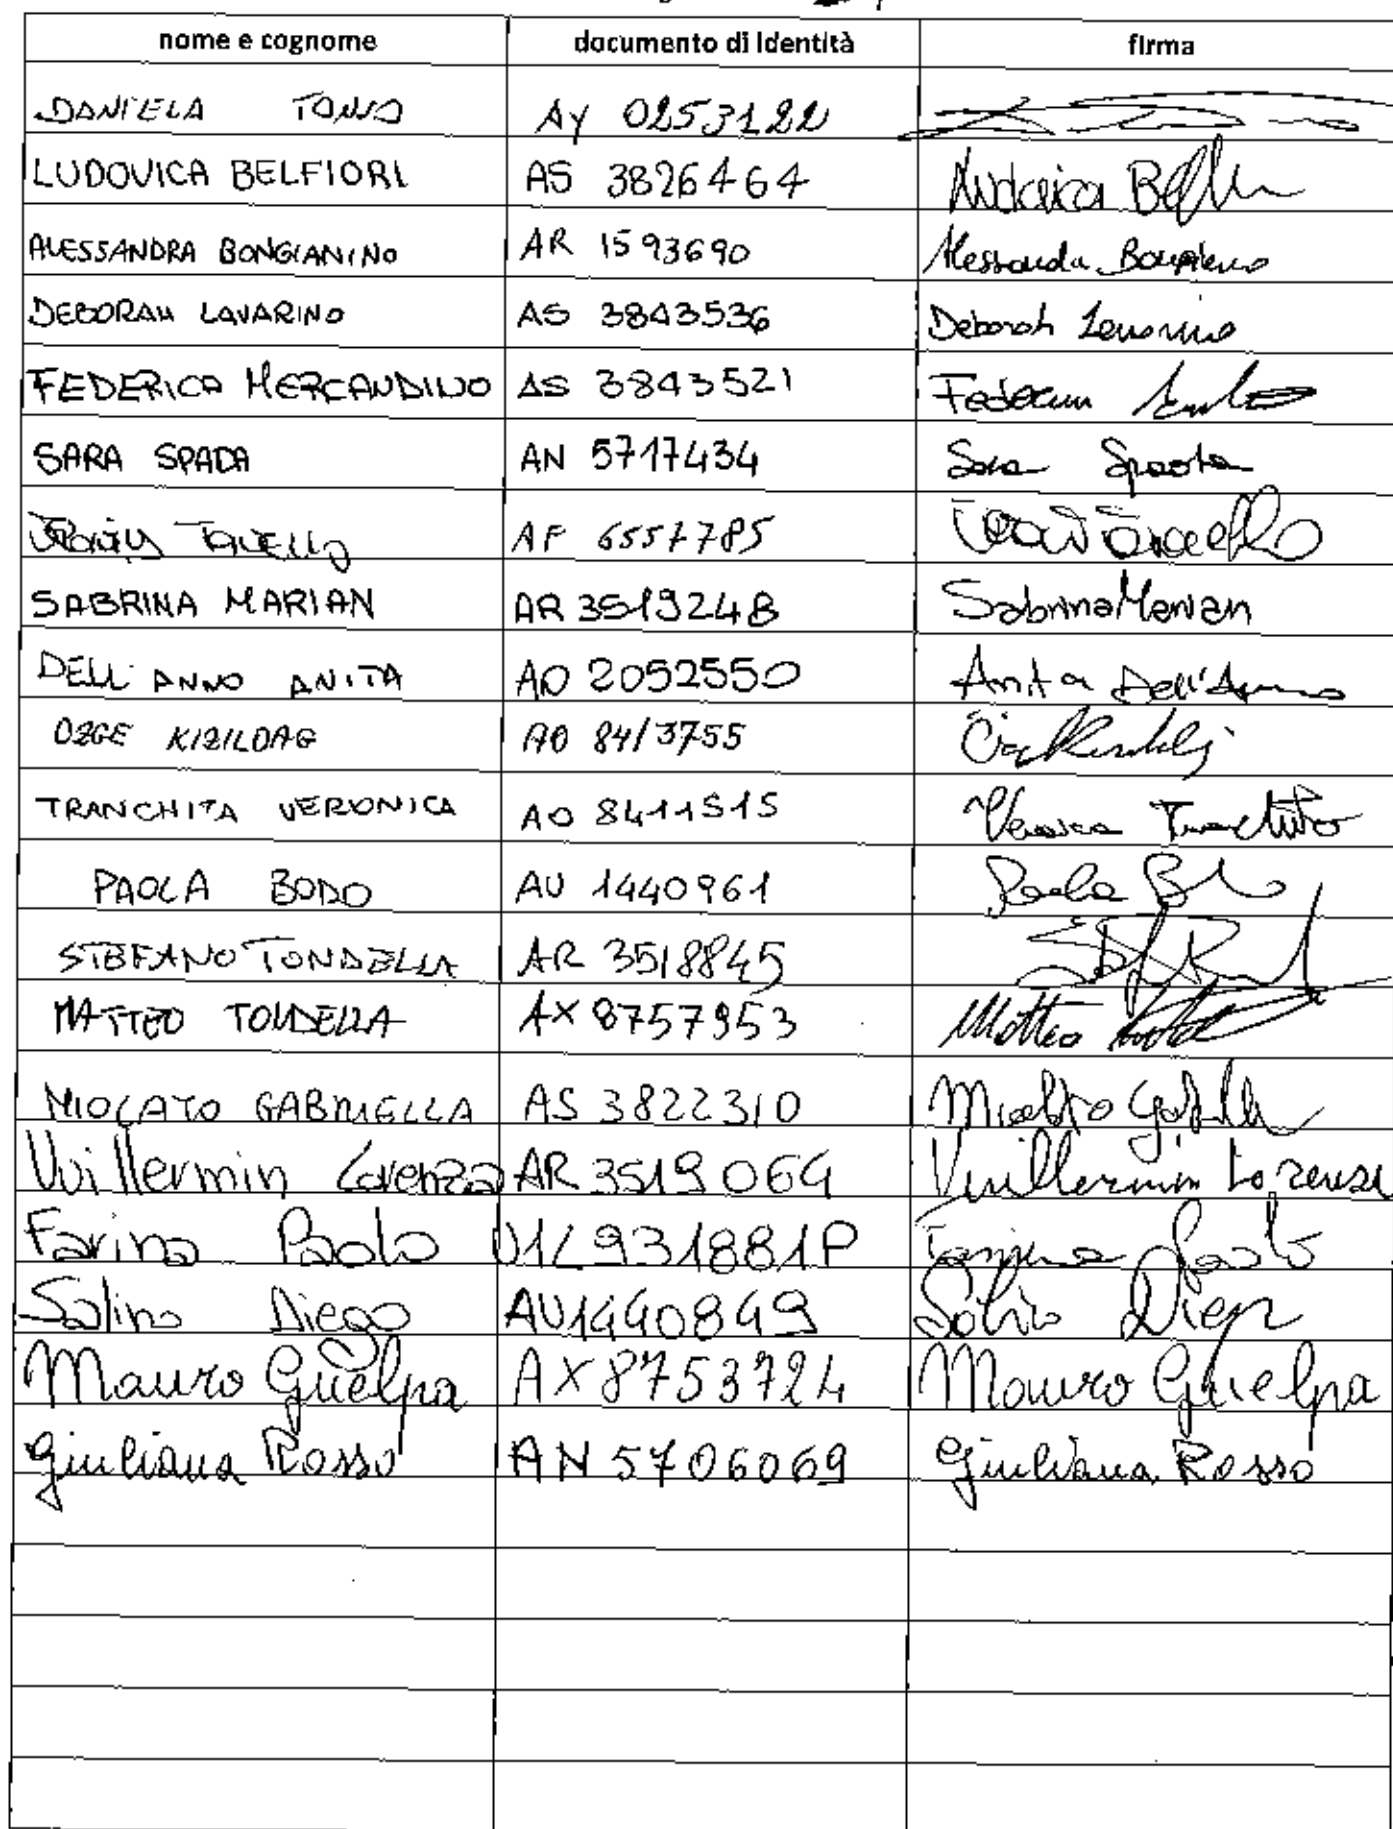 nome e cognome documento di identità firma
DANIELA TONSO AY 0253122
LUDOVICA BELFIORI AS 3826464 Ludovica
ALESSANDRA BONGIANINO AR 1593690 Alessandra Bongianino
DEBORAH LAVARINO AS 3843536 Deborah Lavarino
FEDERICA MERCANDINO AS 3843521 Federica
SARA SPADA AN 5717434 Sara Spada
TAVELLO AF 6557785
SABRINA MARIAN AR 3519248 Sabrina Marian
DELL'ANNO ANITA AO 2052550 Anita Dell'Anno
OZGE KIZILDAG AO 8413755
TRANCHITA VERONICA AO 8411515 Veronica Tranchita
PAOLA BODO AU 1440961 Paola
STEFANO TONDELLA AR 3518845
MATTEO TONDELLA AX 8757953 Matteo
MIOLATO GABRIELLA AS 3822310
Vuillermin Lorenza AR 3519064 Vuillermin Lorenza
Farina Paolo U1L931881P Farina Paolo
Salino Diego AU1440849 Salino Diego
Mauro Guelpa AX8753724 Mauro Guelpa
Giuliana Rosso AN 5706069 Giuliana Rosso